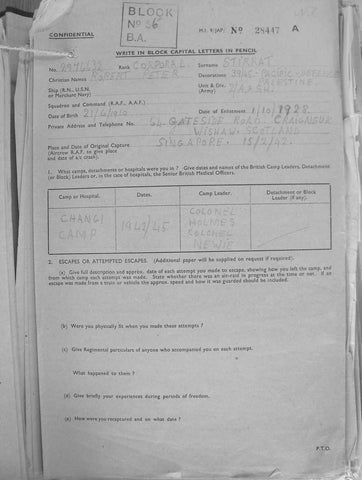 CONFIDENTIAL
BLOCK
No 36
B.A.
M.I. 9/JAP/ No 28447 A
WRITE IN BLOCK CAPITAL LETTERS IN PENCIL
No. Rank CORPORAL Surname STIRRAT
Christian Names ROBERT PETER Decorations 39/45-PACIFIC-DEFENCE
PALESTINE
Ship (R.N., U.S.N. or Merchant Navy) Unit & Div. (Army) 2/A.&S.H.
Squadron and Command (R.A.F., A.A.F.)
Date of Birth 21/6/1910 Date of Enlistment 1/10/1928
Private Address and Telephone No. GATESIDE ROAD. CRAIGNEUK
WISHAW. SCOTLAND
Place and Date of Original Capture SINGAPORE. 15/2/42.
(Aircrew R.A.F. to give place and date of a/c crash).
1. What camps, detachments or hospitals were you in ? Give dates and names of the British Camp Leaders, Detachment
(or Block) Leaders or, in the case of hospitals, the Senior British Medical Officers.
Camp or Hospital. Dates. Camp Leader. Detachment or Block Leader (if any).
CHANGI CAMP 1942/45 COLONEL HOLMES
COLONEL NEWIE
2. ESCAPES OR ATTEMPTED ESCAPES. (Additional paper will be supplied on request if required).
(a) Give full description and approx. date of each attempt you made to escape, showing how you left the camp, and
from which camp each attempt was made. State whether there was an air-raid in progress at the time or not. If an
escape was made from a train or vehicle the approx. speed and how it was guarded should be included.
(b) Were you physically fit when you made these attempts ?
(c) Give Regimental particulars of anyone who accompanied you on each attempt.
What happened to them ?
(d) Give briefly your experiences during periods of freedom.
(e) How were you recaptured and on what date ?
P.T.O.